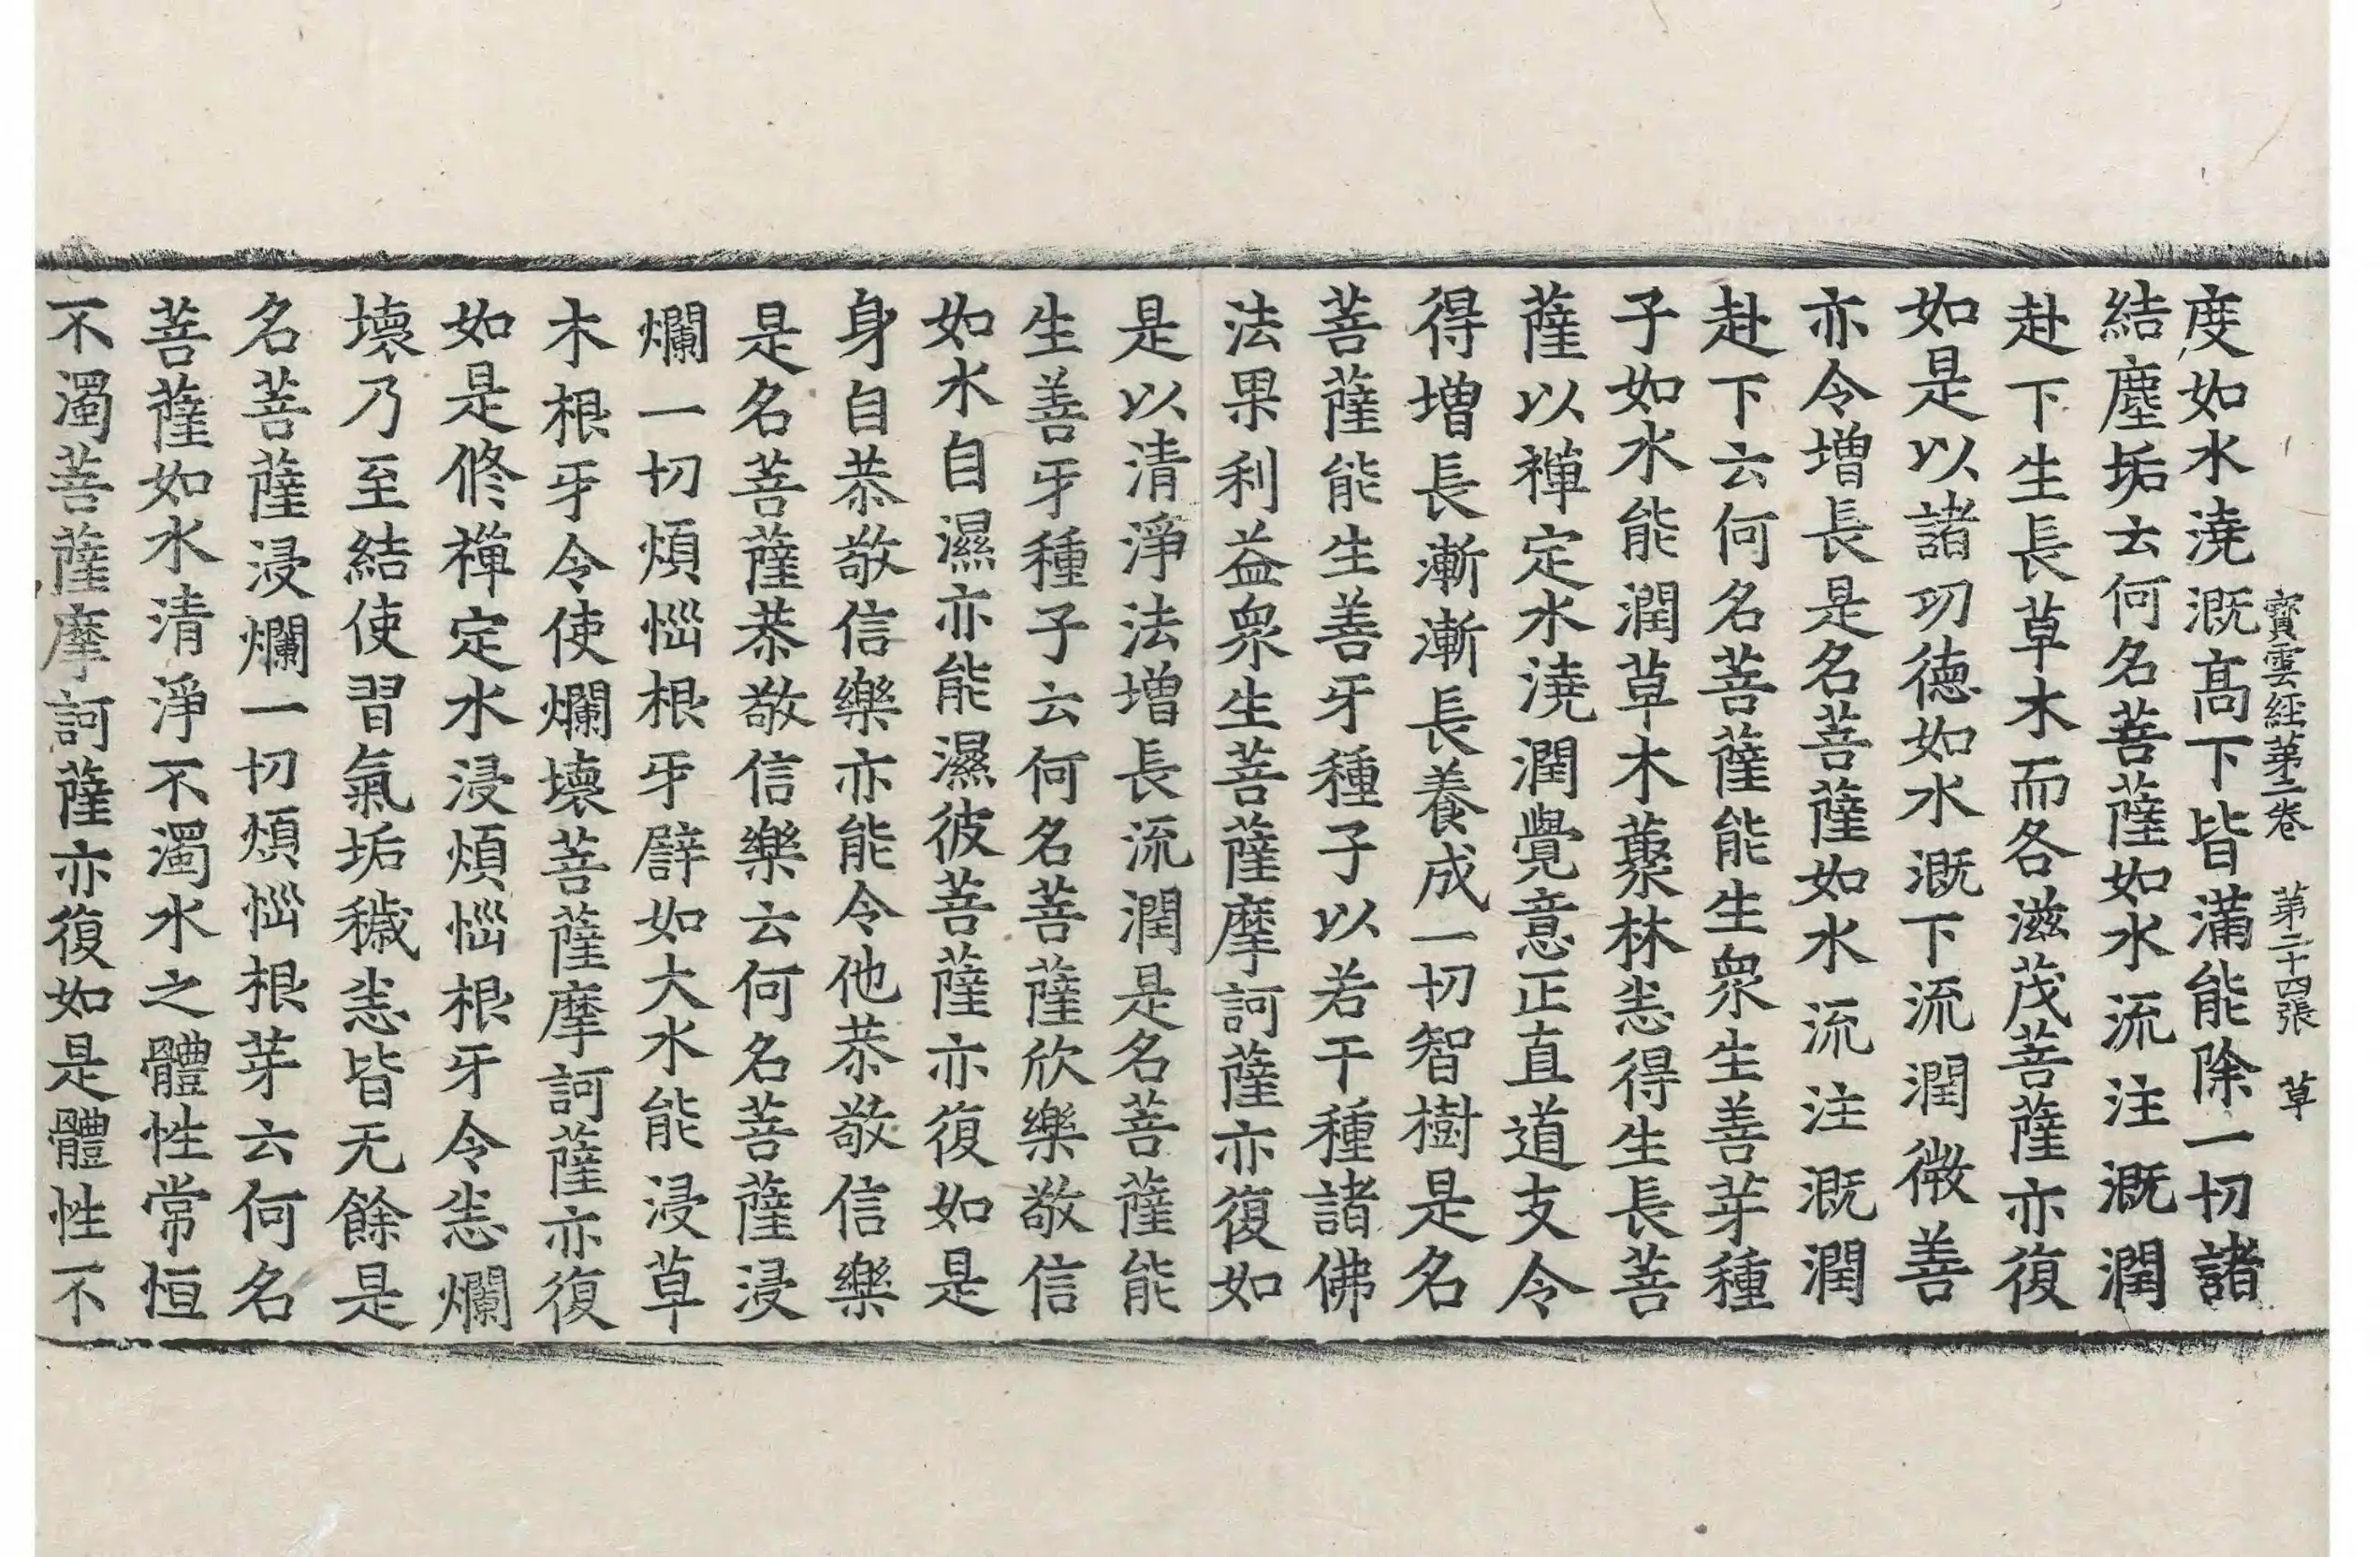 寳雲經苐二卷　第二十四張　草
度如水澆溉髙下皆滿能除一切諸
結塵垢云何名菩薩如水流注溉潤
赴下生長草木而各滋茂菩薩亦復
如是以諸功德如水溉下流潤微善
亦令增長是名菩薩如水流注溉潤
赴下云何名菩薩能生衆生善芽種
子如水能潤草木藂林悉得生長菩
薩以禪定水澆潤覺意正直道支令
得增長漸漸長養成一切智樹是名
菩薩能生善牙種子以若干種諸佛
法果利益衆生菩薩摩訶薩亦復如
是以清淨法增長流潤是名菩薩能
生善牙種子云何名菩薩欣樂敬信
如水自濕亦能濕彼菩薩亦復如是
身自恭敬信樂亦能令他恭敬信樂
是名菩薩恭敬信樂云何名菩薩浸
爛一切煩惱根牙譬如大水能浸草
木根牙令使爛壞菩薩摩訶薩亦復
如是修禪定水浸煩惱根牙令悉爛
壞乃至結使習氣垢穢悉皆无餘是
名菩薩浸爛一切煩惱根芽云何名
菩薩如水清淨不濁水之體性常恒
不濁菩薩摩訶薩亦復如是體性不